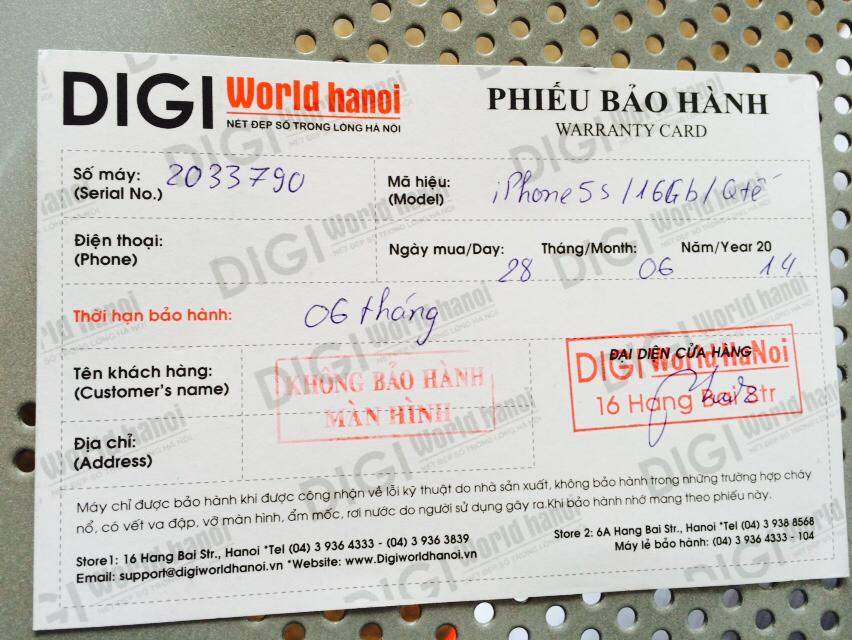 DIGI World hanoi
NÉT ĐẸP SỐ TRONG LÒNG HÀ NỘI
PHIẾU BẢO HÀNH
WARRANTY CARD
Số máy: 2033790
(Serial No.)
Mã hiệu: iPhone 5s/16Gb/Qtế
(Model)
Điện thoại:
(Phone)
Ngày mua/Day: 28 Tháng/Month: 06 Năm/Year 20 14
Thời hạn bảo hành: 06 tháng
Tên khách hàng:
(Customer's name)
KHÔNG BẢO HÀNH
MÀN HÌNH
ĐẠI DIỆN CỬA HÀNG
DIGI World HaNoi
16 Hang Bai Str
Địa chỉ:
(Address)
Máy chỉ được bảo hành khi được công nhận về lỗi kỹ thuật do nhà sản xuất, không bảo hành trong những trường hợp cháy
nổ, có vết va đập, vỡ màn hình, ẩm mốc, rơi nước do người sử dụng gây ra.Khi bảo hành nhớ mang theo phiếu này.
Store1: 16 Hang Bai Str., Hanoi *Tel (04) 3 936 4333 - (04) 3 936 3839
Email: support@digiworldhanoi.vn *Website: www.Digiworldhanoi.vn
Store 2: 6A Hang Bai Str., Hanoi *Tel (04) 3 938 8568
Máy lẻ bảo hành: (04) 3 936 4333 - 104